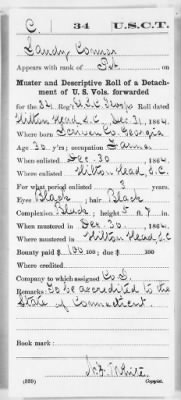 C. 34 U.S.C.T.
Sandy Conner
Appears with rank of Pvt. on
Muster and Descriptive Roll of a Detach-
ment of U. S. Vols. forwarded
for the 34 Reg't U.S.C. Troops Roll dated
Hilton Head S.C. Dec. 31, 1864.
Where born Scriven Co. Georgia
Age 30 y'rs; occupation Farmer
When enlisted Dec. 30, 1864.
Where enlisted Hilton Head, S.C.
For what period enlisted 3 years.
Eyes Black; hair Black
Complexion Black; height 5 ft. 7 in.
When mustered in Dec. 30, 1864.
Where mustered in Hilton Head, S.C.
Bounty paid $ 100 100; due $ 100
Where credited
Company to which assigned Co.
Remarks: To be accredited to the
State of Connecticut.
Book mark:
White
(339) Copyist.